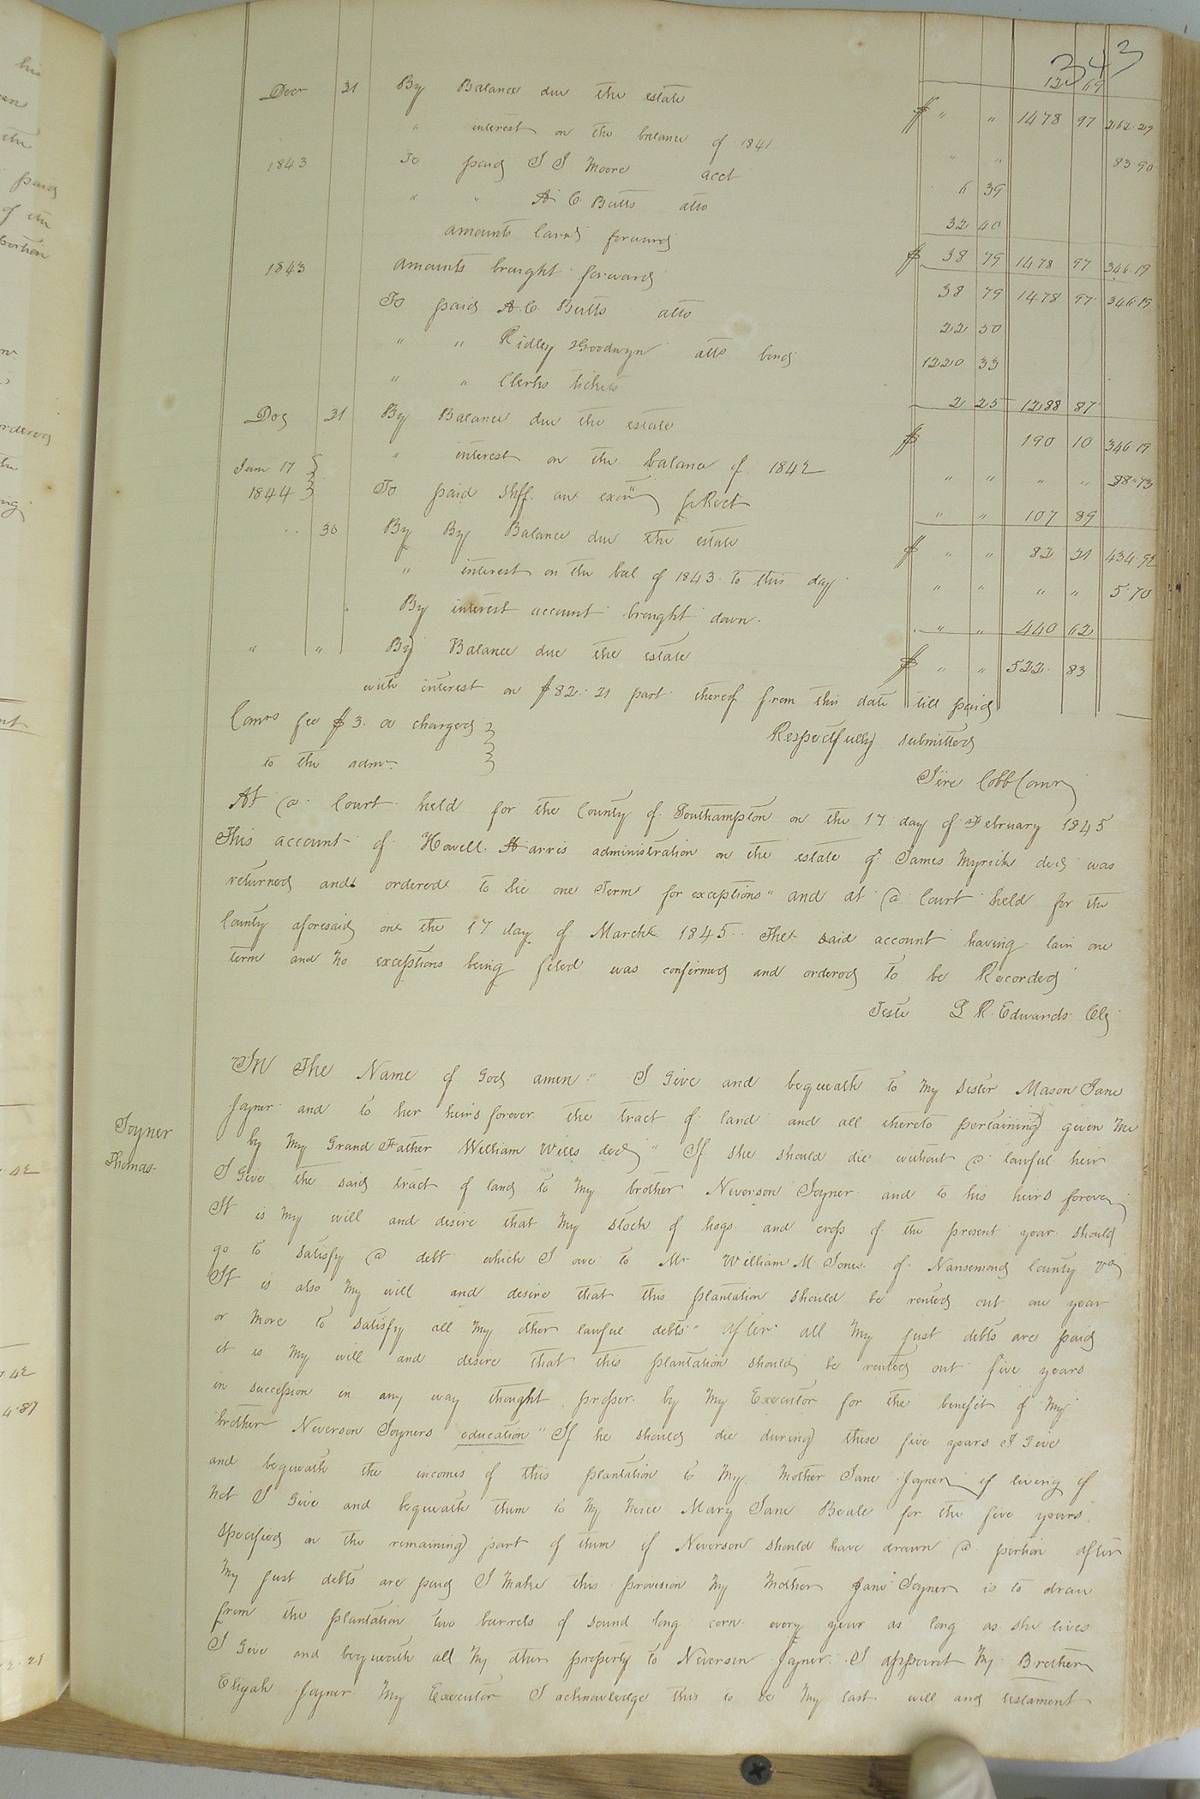 343
12 69
Decr 31 By Balance due the estate $ " " 1478 97 262.29
" interest on the balance of 1841 " " 83.90
1843 To paid J J Moore acct 6 39
" " A C Butts atto 32 40
amounts card forward $ 38 79 1478 97 346.19
1843 amounts brought forward 38 79 1478 97 346.19
To paid A. C. Butts atto 22 50
" " Ridley Goodwyn atto bond 1220 33
" " Clerks tickets 2 25 1288 87
Dec 31 By Balance due the estate $ 190 10 346.19
" interest on the balance of 1842 " " " " 88.73
Jan 17 1844 To paid Shff. an exon " " 107 89
" 30 By By Balance due the estate $ " " 82 21 434.92
" interest on the bal of 1843 to this day " " " " 5.70
By interest account brought down. " " 440 62
" " By Balance due the estate $ " " 522. 83
with interest on $82.21 part thereof from this date till paid
Comrs fee $3. 00 charged
to the admr. Respectfully submitted
Jere Cobb Comr
At a Court held for the County of Southampton on the 17 day of February 1845
This account of Howell Harris administration on the estate of James Myrick decd was
returned and ordered to lie one Term for exceptions" and at a Court held for the
County aforesaid on the 17 day of March 1845. The said account having lain one
term and no exceptions being filed was confirmed and ordered to be Recorded
Teste L R. Edwards Clk
Joyner
Thomas.
In The Name of God amen" I Give and bequeath to My Sister Mason Jane
Joyner and to her heirs forever the tract of land and all thereto pertaining given Me
by My Grand Father William Wills decd" If she should die without a lawful heir
I Give the said tract of land to My brother Neverson Joyner and to his heirs forever
It is My will and desire that My stock of hogs and crop of the present year should
go to satisfy a debt which I owe to Mr William M. Jones of Nansemond County Va
It is also My will and desire that this plantation should be rented out one year
or more to satisfy all My other lawful debts" after all My just debts are paid
it is My will and desire that this plantation should be rented out five years
in succession in any way thought proper by My Executor for the benefit of My
brother Neverson Joyners education" If he should die during these five years I Give
and bequeath the incomes of this plantation to My Mother Jane Joyner if living if
not I Give and bequeath them to My Niece Mary Jane Beale for the five years
specified or the remaining part of them if Neverson should have drawn a portion after
My just debts are paid I Make this provision My Mother Jane Joyner is to draw
from the plantation two barrels of sound long corn every year as long as she lives
I Give and bequeath all My other property to Neverson Joyner. I appoint My Brother
Elijah Joyner My Executor I acknowledge this to be My last will and testament